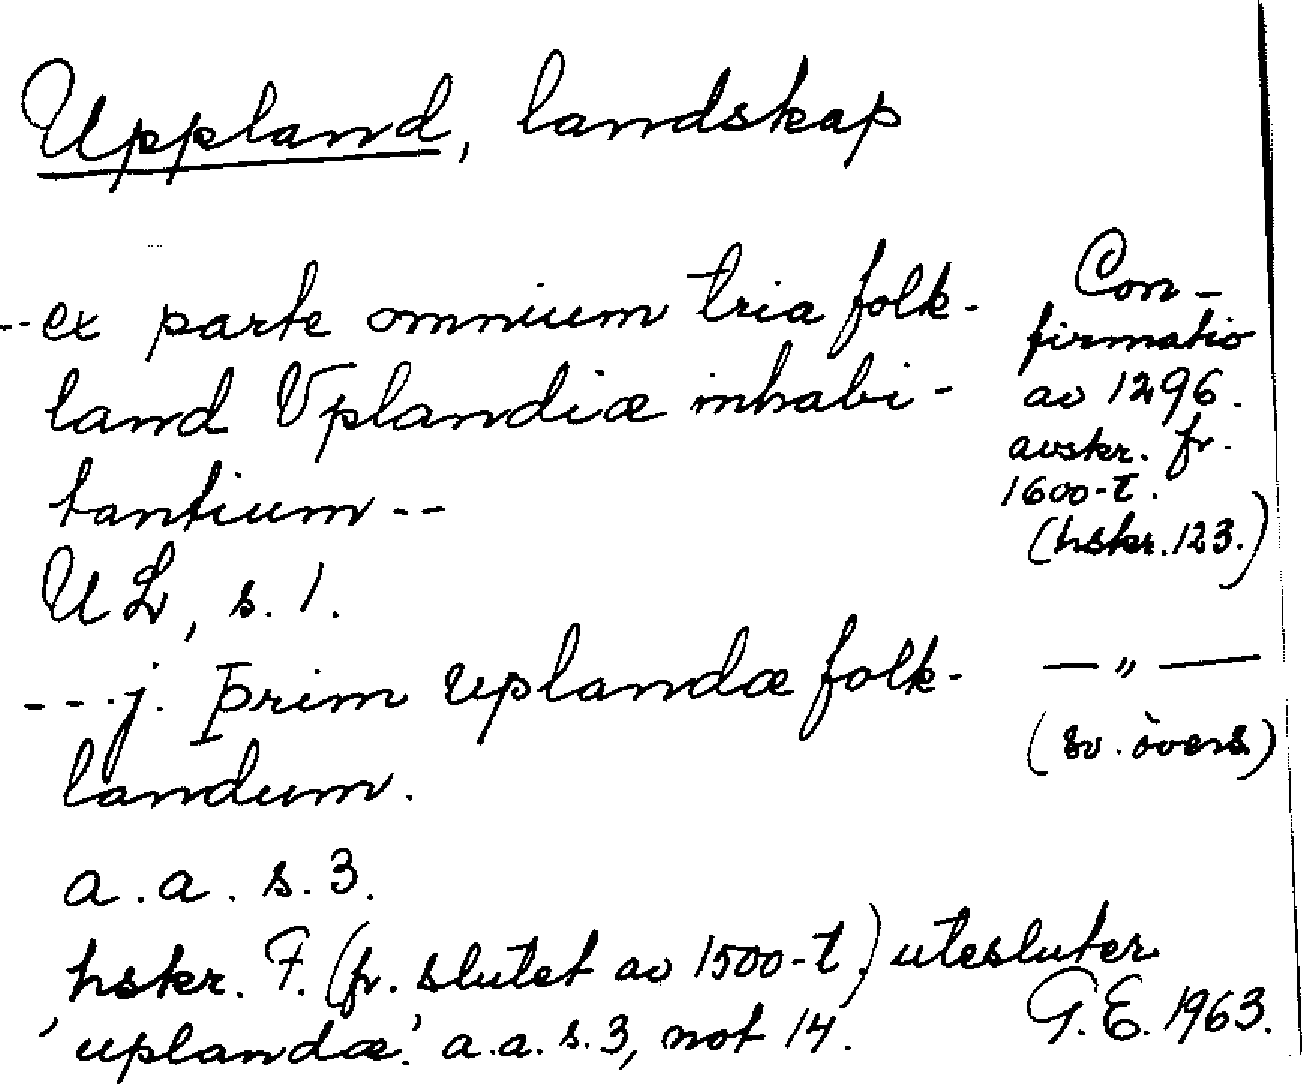 Uppland, landskap
--ex parte omnium tria folk-
land Uplandiæ inhabi-
tantium --
UL, s. 1.
Con-
firmatio
av 1296.
avskr. fr.
1600-t.
(hskr. 123.)
---j. þrim uplandæ folk-
landum.
a.a. s. 3.
— " —
(sv. övers)
hskr. F. (fr. slutet av 1500-t.) utesluter
'uplandæ'. a.a. s. 3, not 14.
G.E. 1963.